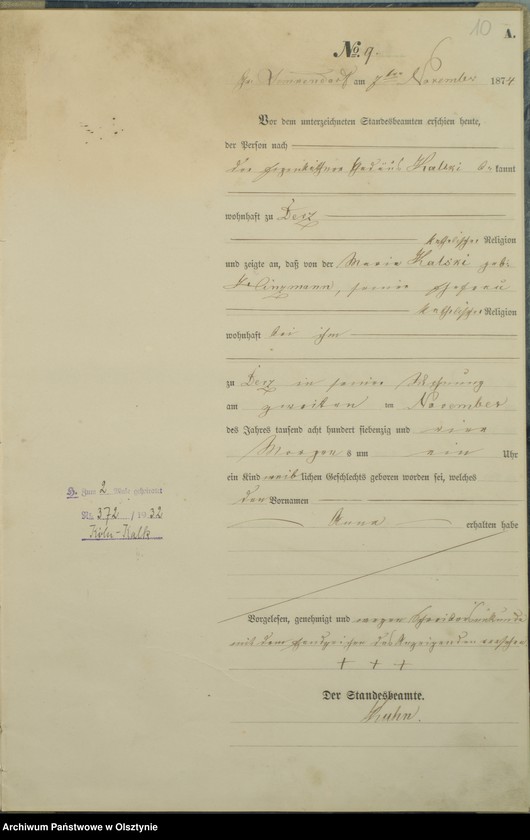 10
A.
No. 9.
am 7ten November 1874
Vor dem unterzeichneten Standesbeamten erschien heute,
der Person nach
der Kalski bekannt
wohnhaft zu Derz
katholischer Religion
und zeigte an, daß von der Maria Kalski geb.
Klingmann, seiner Ehefrau
katholischer Religion
wohnhaft bei ihm
zu Derz in seiner Wohnung
am zweiten November
des Jahres tausend acht hundert siebenzig und vier
Morgens um ein Uhr
ein Kind weiblichen Geschlechts geboren worden sei, welches
den Vornamen
Anna erhalten habe
H. Zum 2. Male geheiratet
Nr. 372 / 1932
Köln-Kalk
Vorgelesen, genehmigt und wegen Schreibensunkunde
mit dem Handzeichen des Anzeigenden versehen
+ + +
Der Standesbeamte.
Kuhn.
Archiwum Państwowe w Olsztynie